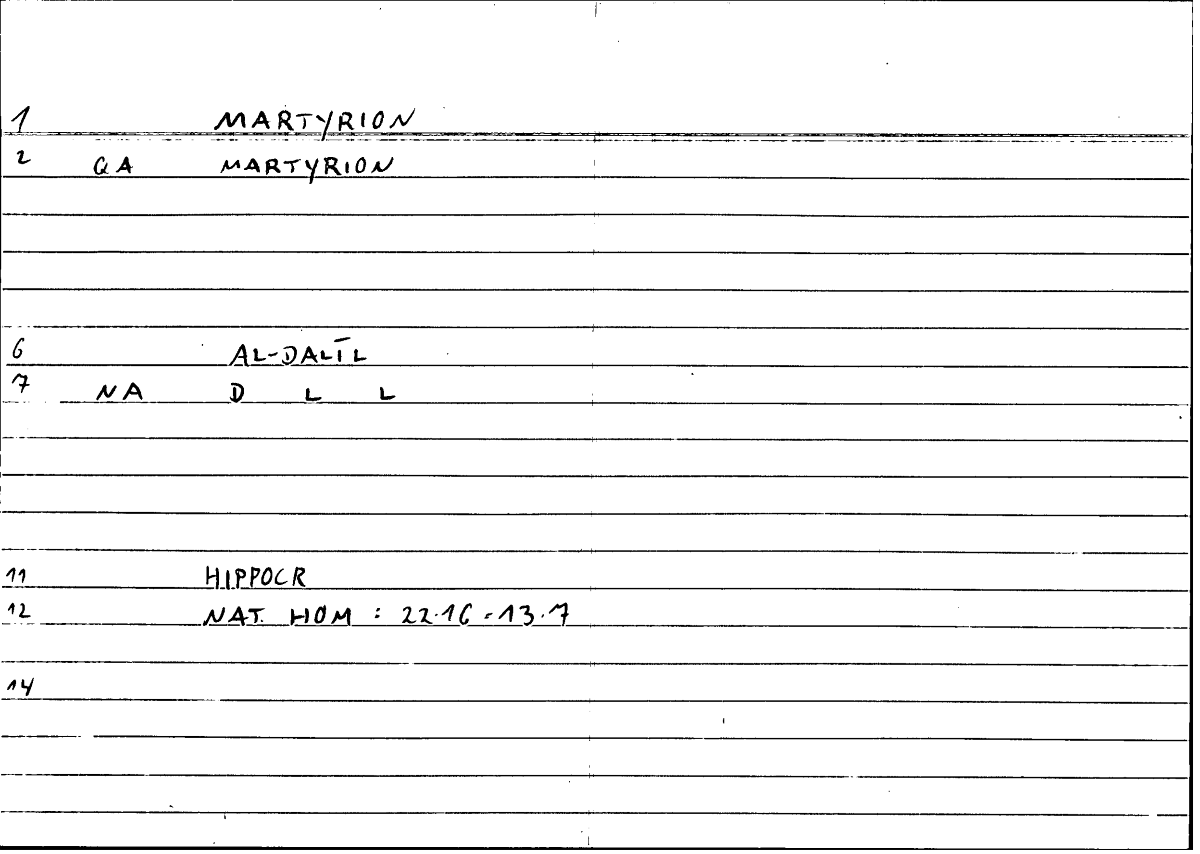 1 MARTYRION
2 QA MARTYRION
6 AL-DALĪL
7 NA D L L
11 HIPPOCR
12 NAT. HOM : 22.16 = 13.7
14